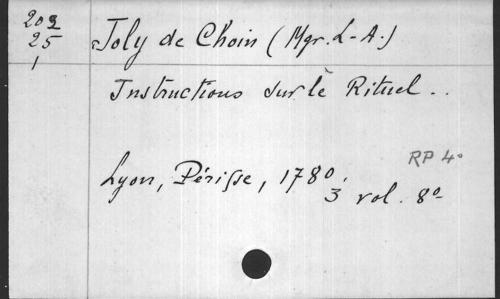 202
25
1
Joly de Choin (Mgr. L-A.)
Instructions sur le Rituel..
RP 4°
Lyon, Périsse, 1780,
3 vol. 8°